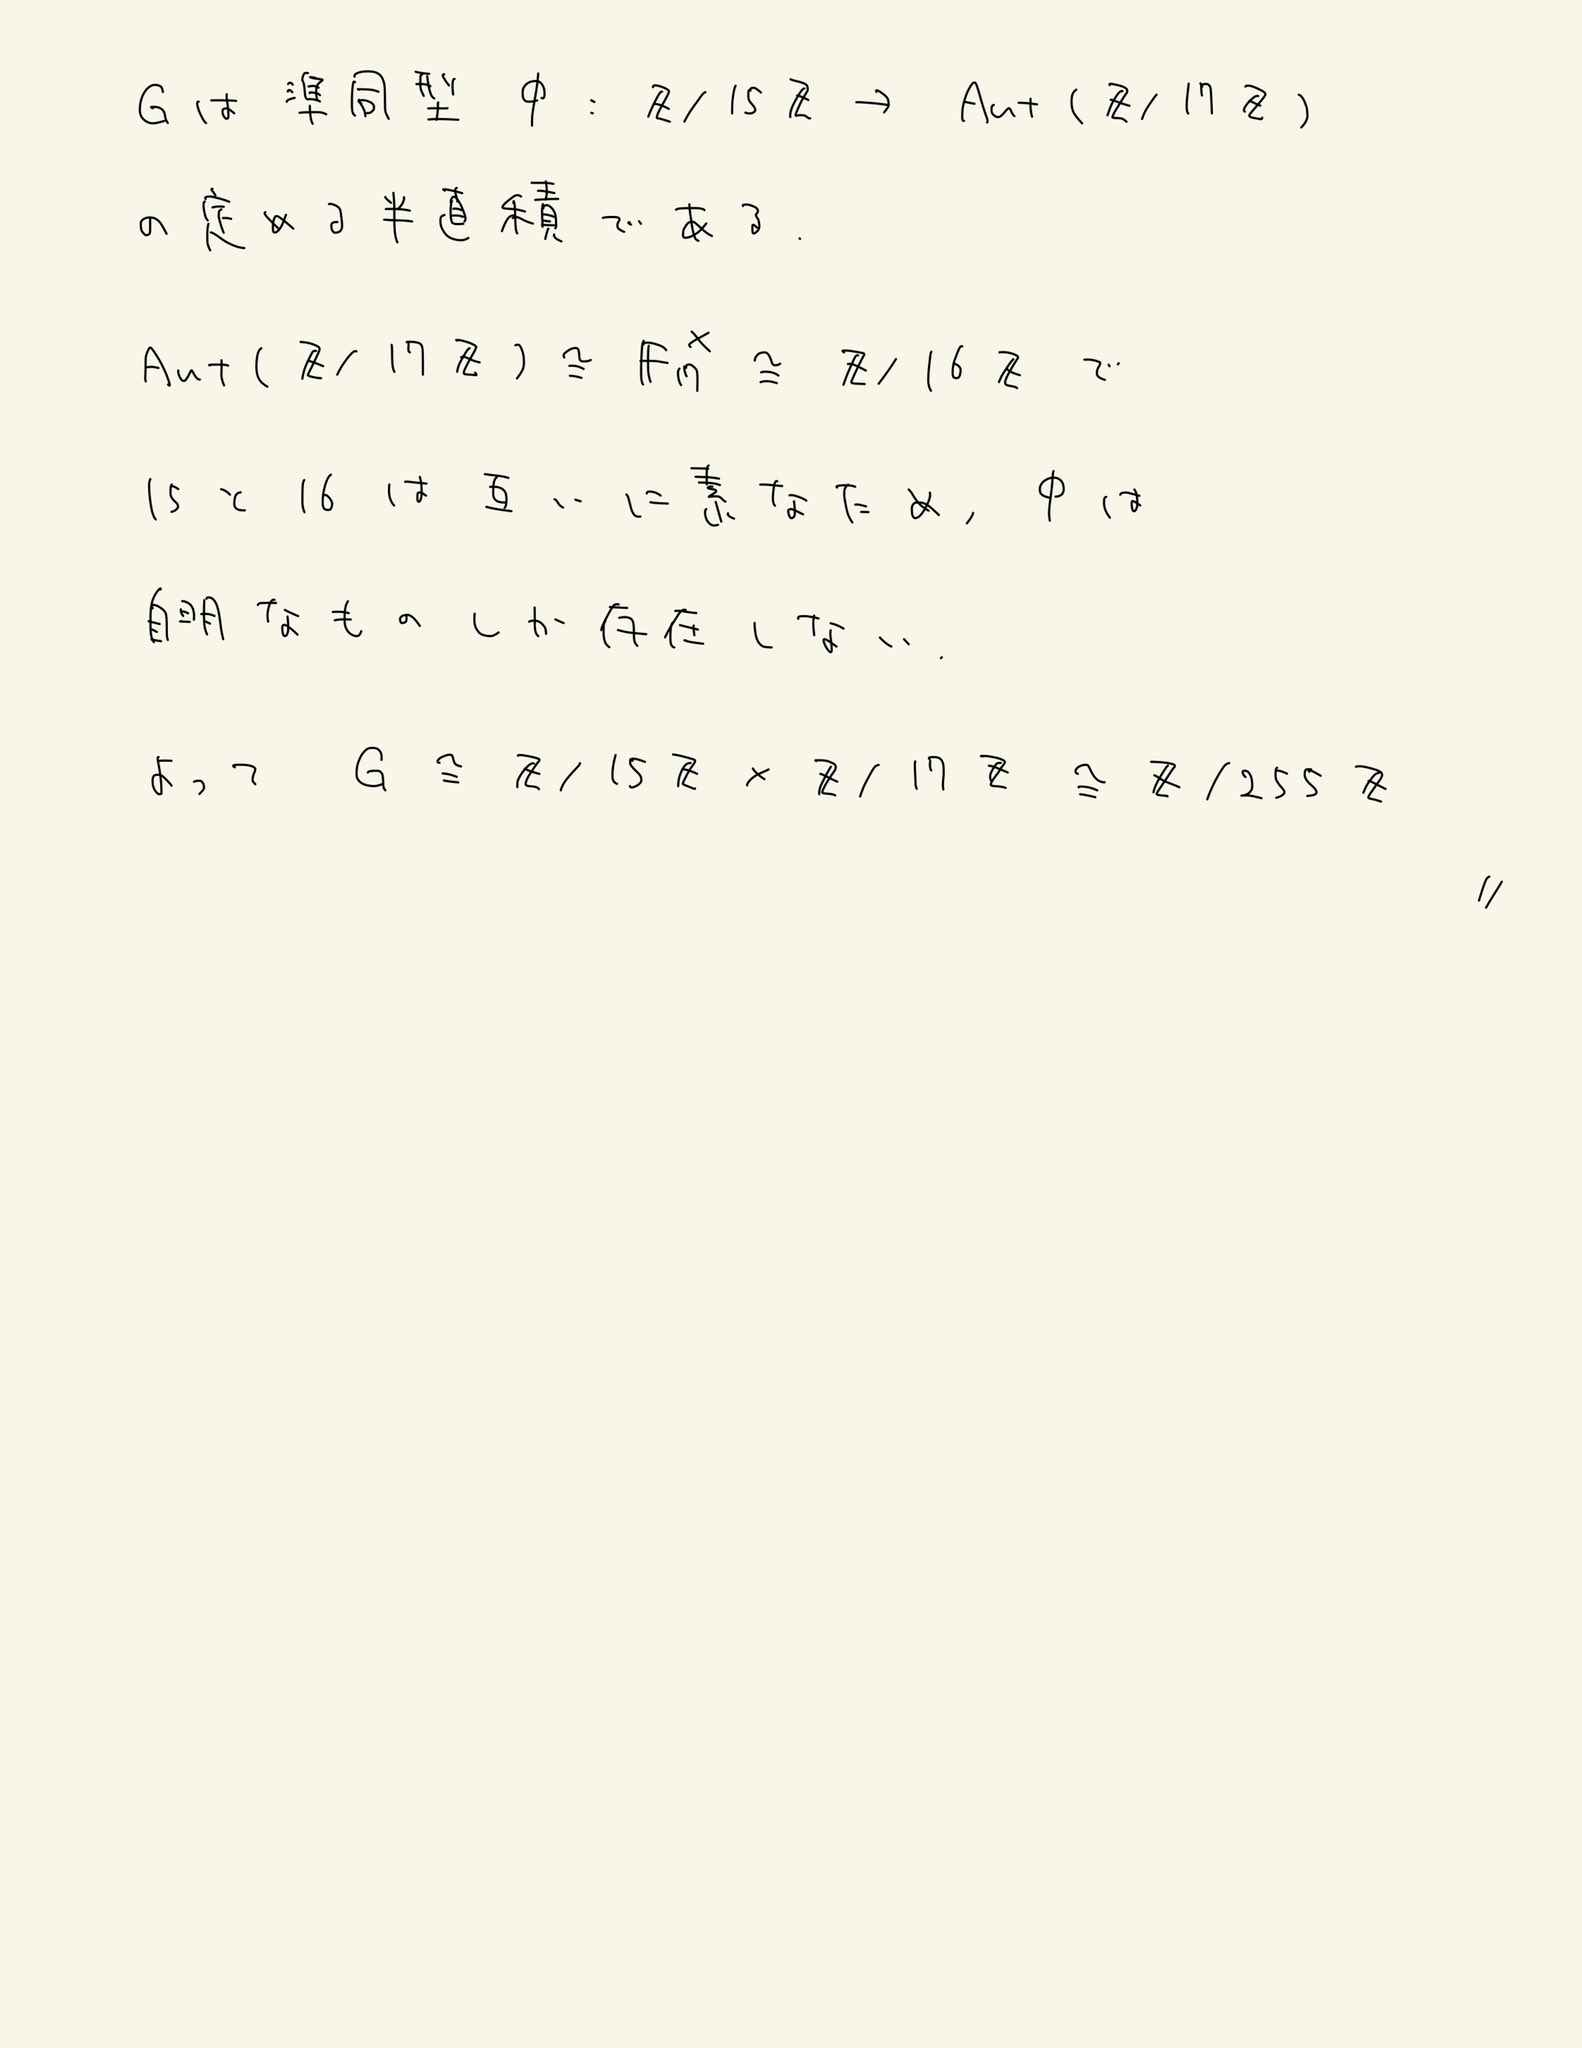 Gは 準同型 φ : ℤ/15ℤ → Aut(ℤ/17ℤ)
の定める半直積である.
Aut(ℤ/17ℤ) ≅ 𝔽₁₇^× ≅ ℤ/16ℤ で
15と16は互いに素なため, φは
自明なものしか存在しない.
よって G ≅ ℤ/15ℤ × ℤ/17ℤ ≅ ℤ/255ℤ
//